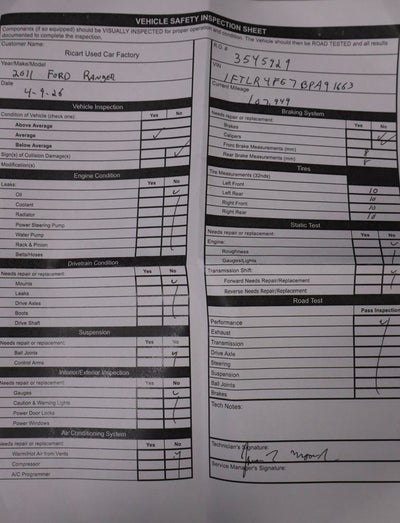 VEHICLE SAFETY INSPECTION SHEET
Components (if so equipped) should be VISUALLY INSPECTED for proper operation and condition. The Vehicle should then be ROAD TESTED and all results
documented to complete the inspection.
Customer Name:
Ricart Used Car Factory
Year/Make/Model
2011 FORD RANGER
Date
4-9-26
Vehicle Inspection
Condition of Vehicle (check one): Yes No
Above Average
Average
Below Average
Sign(s) of Collision Damage(s)
Modification(s)
Engine Condition
Leaks: Yes No
Oil
Coolant
Radiator
Power Steering Pump
Water Pump
Rack & Pinion
Belts/Hoses
Drivetrain Condition
Needs repair or replacement: Yes No
Mounts
Leaks
Drive Axles
Boots
Drive Shaft
Suspension
Needs repair or replacement: Yes No
Ball Joints
Control Arms
Interior/Exterior Inspection
Needs repair or replacement: Yes No
Gauges
Caution & Warning Lights
Power Door Locks
Power Windows
Air Conditioning System
Needs repair or replacement: Yes No
Warm/Hot Air from Vents
Compressor
A/C Programmer
R.O. #
3545929
VIN
Current Mileage
107,949
Braking System
Needs repair or replacement: Yes No
Brakes
Calipers
Front Brake Measurements (mm) 8
Rear Brake Measurements (mm) 8
Tires
Tire Measurements (32nds)
Left Front 10
Left Rear 10
Right Front 10
Right Rear 10
Static Test
Needs repair or replacement: Yes No
Engine:
Roughness
Gauges/Lights
Transmission Shift:
Forward Needs Repair/Replacement
Reverse Needs Repair/Replacement
Road Test
Pass Inspection
Performance
Exhaust
Transmission
Drive Axle
Steering
Suspension
Ball Joints
Brakes
Tech Notes:
Technician's Signature:
Service Manager's Signature: